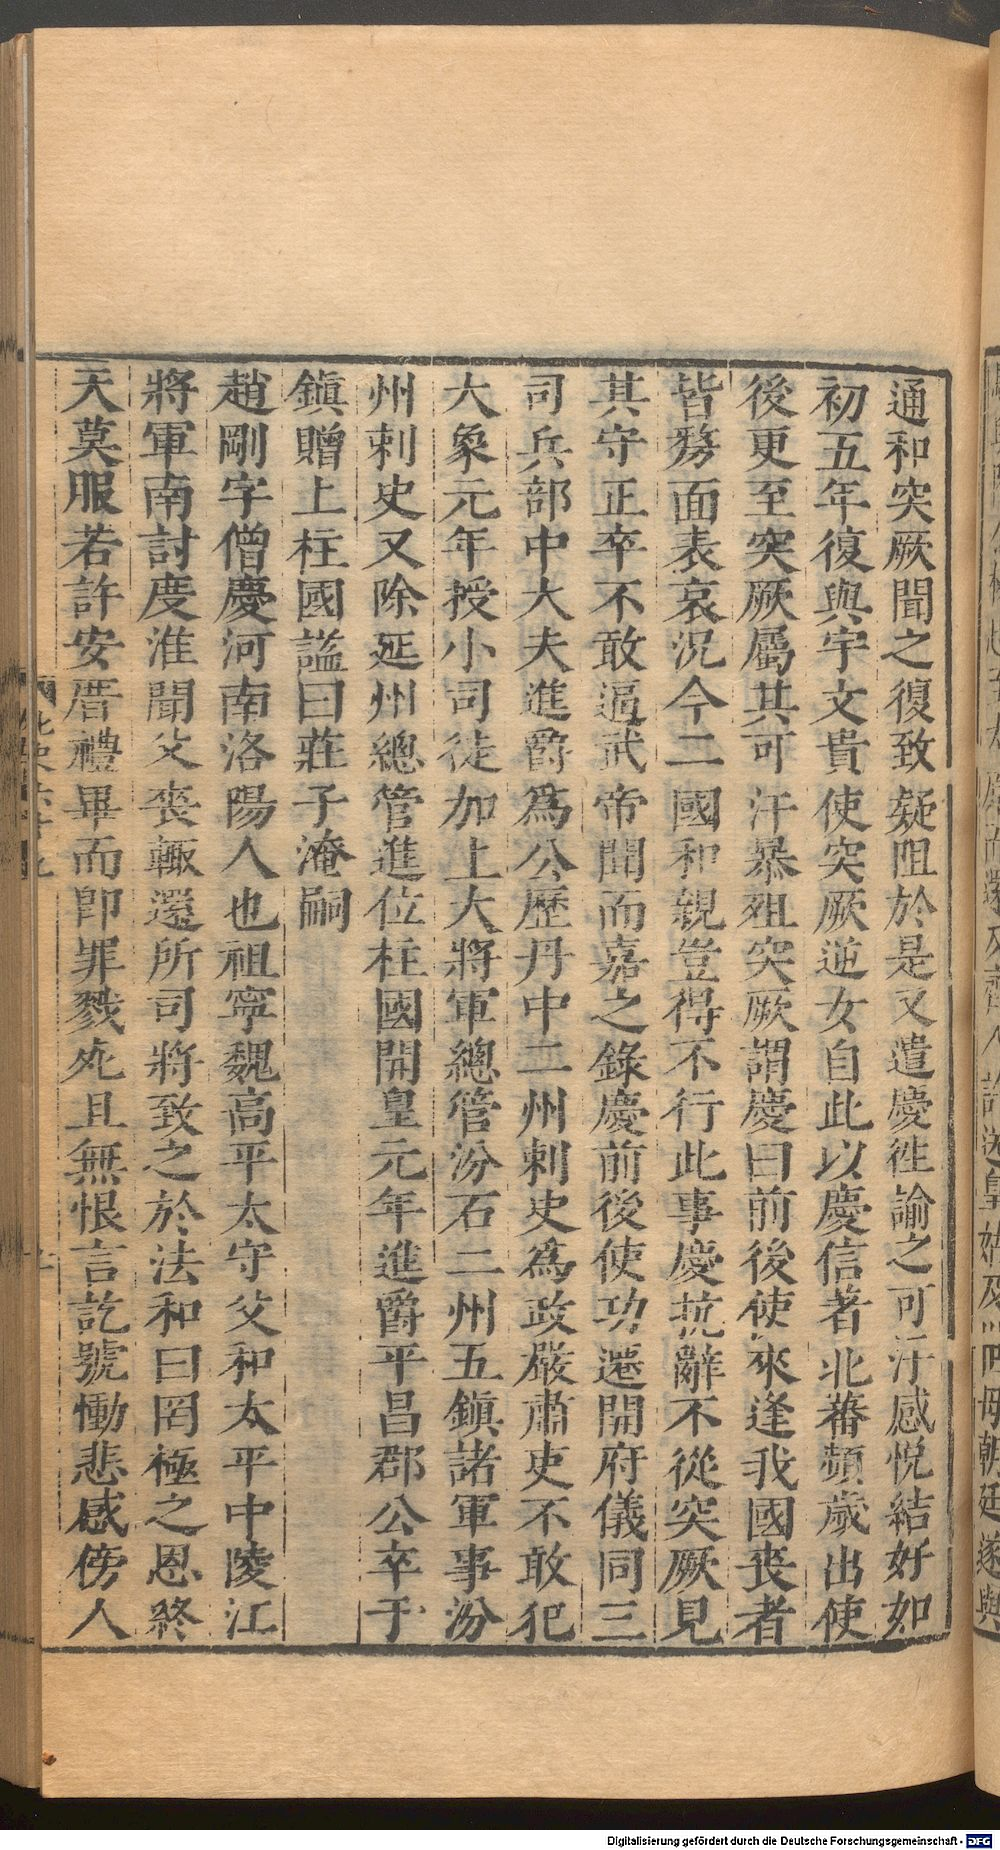 通和突厥聞之復致疑阻於是又遣慶徃諭之可汗感悅結好如
初五年復與宇文貴使突厥逆女自此以慶信著北蕃頻歲出使
後更至突厥屬其可汗暴殂突厥謂慶曰前後使來逢我國喪者
皆剺面表哀況今二國和親豈得不行此事慶抗辭不從突厥見
其守正卒不敢逼武帝聞而嘉之錄慶前後使功遷開府儀同三
司兵部中大夫進爵爲公歷丹中二州刺史爲政嚴肅吏不敢犯
大象元年授小司徒加上大將軍總管汾石二州五鎮諸軍事汾
州刺史又除延州總管進位柱國開皇元年進爵平昌郡公卒于
鎮贈上柱國謚曰莊子淹嗣
趙剛字僧慶河南洛陽人也祖寧魏高平太守父和太平中陵江
將軍南討度淮聞父喪輒還所司將致之於法和曰罔極之恩終
天莫服若許安厝禮畢而卽罪戮死且無恨言訖號慟悲感傍人
Digitalisierung gefördert durch die Deutsche Forschungsgemeinschaft - DFG